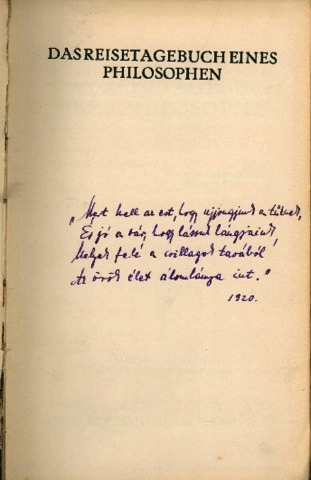 DAS REISETAGEBUCH EINES
PHILOSOPHEN
„Mert kell az est, hogy ujjongjunk a tűznek,
És jó a vár, hogy lássuk lángjaink,
Melyek felé a csillagok tavából
Az örök élet álomlánya int."
1920.